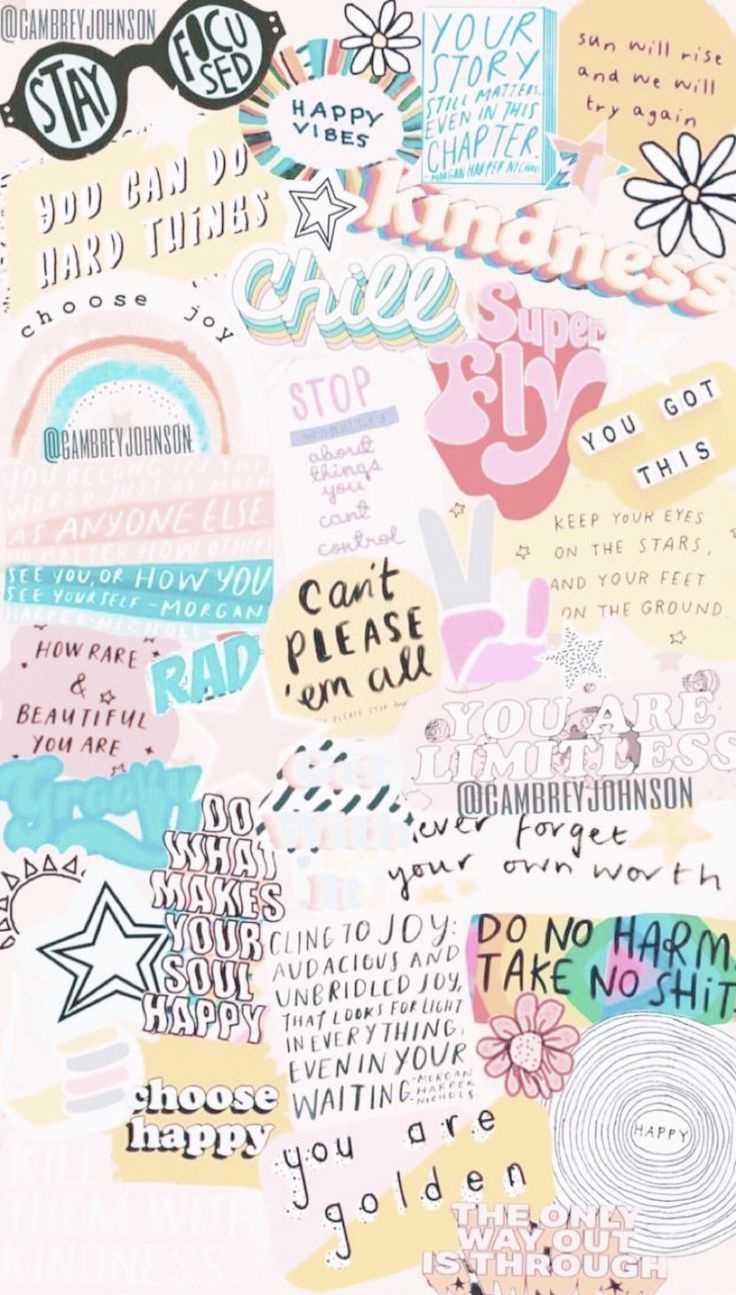 @CAMBREYJOHNSON
STAY
FOCU
SED
HAPPY
VIBES
YOUR
STORY
STILL MATTERS,
EVEN IN THIS
CHAPTER.
- MORGAN HARPER NICHOLS
sun will rise
and we will
try again
YOU CAN DO
HARD THINGS
kindness
choose joy
Chill
Super
Fly
@CAMBREYJOHNSON
STOP
worrying
about
things
you
cant
control
YOU GOT
THIS
YOU BELONG IN THIS
WORLD JUST AS MUCH
AS ANYONE ELSE.
NO MATTER HOW OTHERS
SEE YOU, OR HOW YOU
SEE YOURSELF - MORGAN
HARPER NICHOLS
KEEP YOUR EYES
ON THE STARS,
AND YOUR FEET
ON THE GROUND
Can't
PLEASE
'em all
HOW RARE
&
BEAUTIFUL
YOU ARE
RAD
YOU ARE
LIMITLESS
@CAMBREYJOHNSON
Groovy
Get
With
It
ever forget
your own worth
DO
WHAT
MAKES
YOUR
SOUL
HAPPY
CLING TO JOY:
AUDACIOUS AND
UNBRIDLED JOY,
THAT LOOKS FOR LIGHT
IN EVERYTHING,
EVEN IN YOUR
WAITING. - MORGAN
HARPER
NICHOLS
DO NO HARM
TAKE NO SHIT
choose
happy
HAPPY
you are
golden
THEM WITH
KINDNESS
THE ONLY
WAY OUT
IS THROUGH